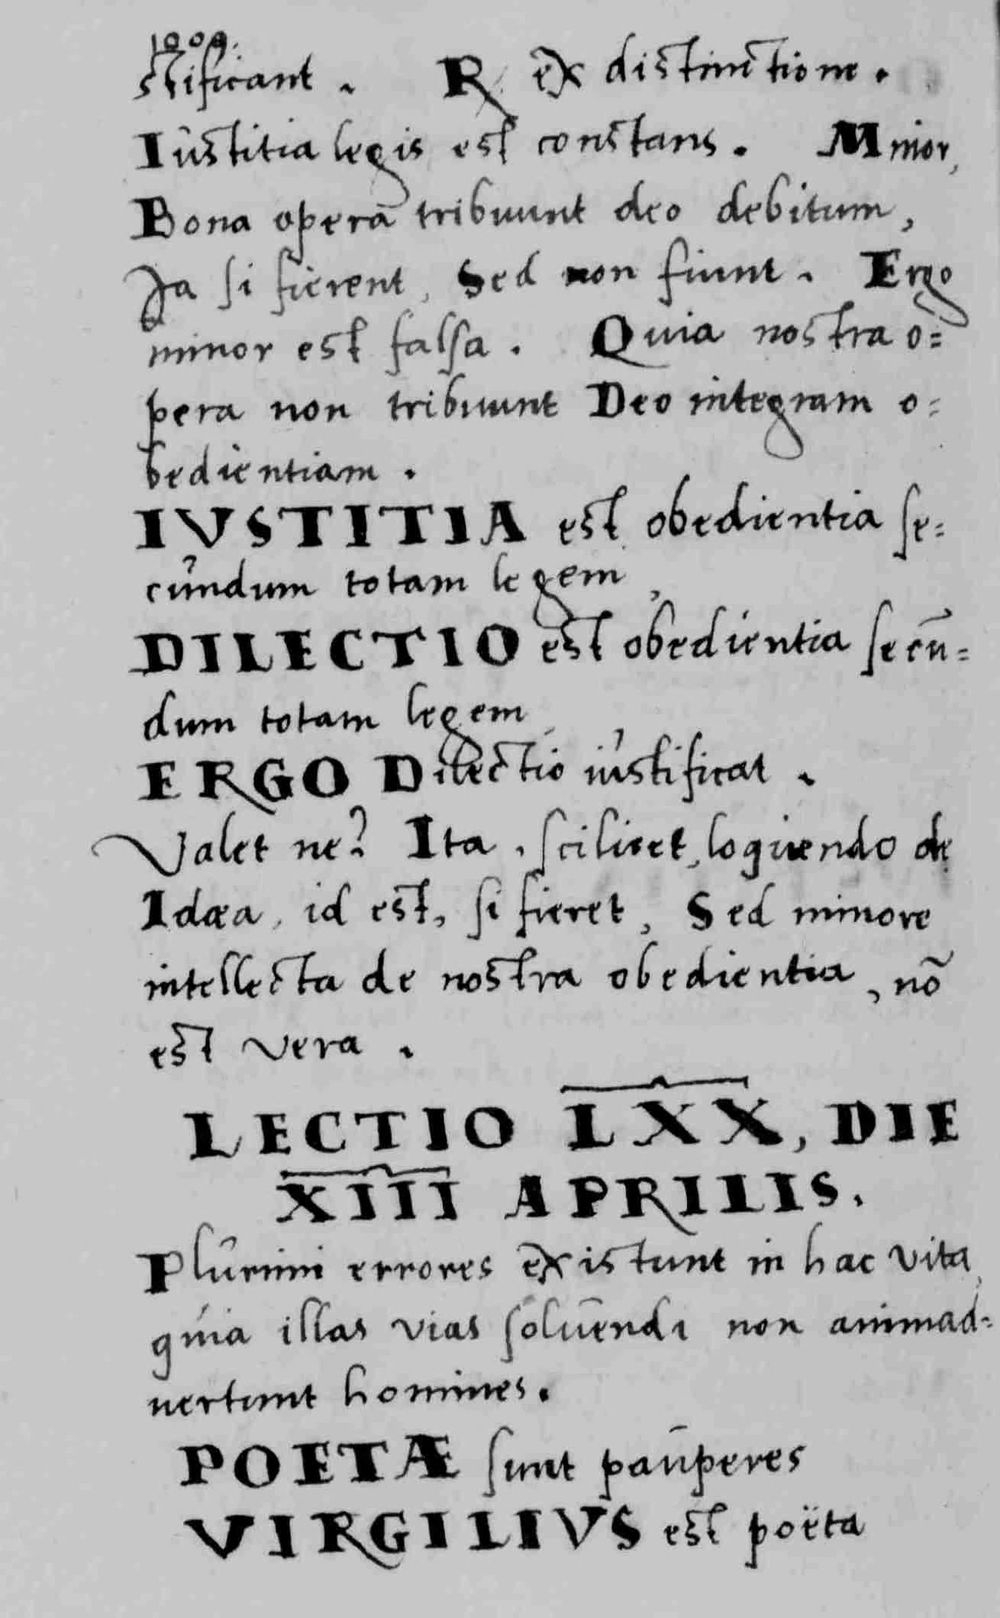 1009.
stificant. R ex distinctione.
Iustitia legis est constans. Minor,
Bona opera tribuunt deo debitum,
Ja si fierent, Sed non fiunt. Ergo
minor est falsa. Quia nostra o=
pera non tribuunt Deo integram o=
bedientiam.
IVSTITIA est obedientia se=
cundum totam legem,
DILECTIO est obedientia secū=
dum totam legem
ERGO Dilectio iustificat.
Valet ne? Ita, scilicet, loquendo de
Idæa, id est, si fieret, Sed minore
intellecta de nostra obedientia, nō
est vera.
LECTIO LXX, DIE
XIII APRILIS.
Plurimi errores existunt in hac vita,
quia illas vias soluendi non animad=
uertunt homines.
POETÆ sunt pauperes
VIRGILIVS est poëta